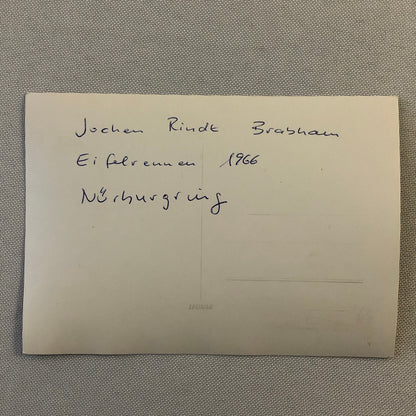 Jochen Rindt Brabham
Eifelrennen 1966
Nürburgring